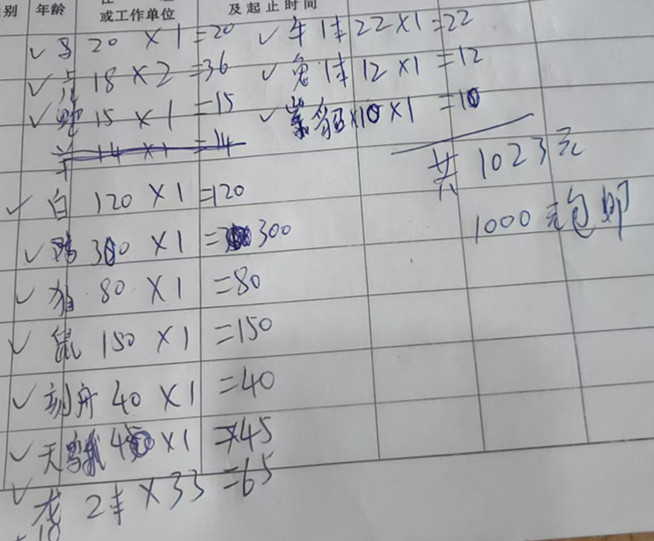 别 年龄 或工作单位 及起止时间
✓ 马 20 × 1 = 20 ✓ 牛1本 22 × 1 = 22
✓ 虎 18 × 2 = 36 ✓ 兔1本 12 × 1 = 12
✓ 15 × 1 = 15 ✓ ×10 × 1 = 10
羊 14 × 1 = 14
共 1023元
✓ 白 120 × 1 = 120
1000元包邮
✓ 鸡 300 × 1 = 300
✓ 猪 80 × 1 = 80
✓ 鼠 150 × 1 = 150
✓ 刻舟 40 × 1 = 40
✓ 天鹅 45 × 1 = 45
✓ 龙 2本 × 33 = 65